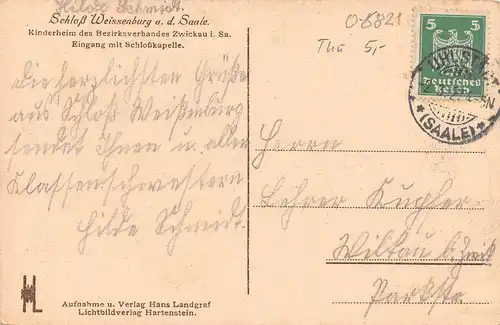 Hilde Schmidt.
Schloß Weissenburg a. d. Saale.
Kinderheim des Bezirksverbandes Zwickau i. Sa.
Eingang mit Schloßkapelle.
O-5821
Thü 5,-
5 5
Deutsches
Reich
(SAALE)
Die herzlichsten Grüße
aus Schloß Weißenburg
sendet Ihnen u. allen
Klassenschwestern
Hilde Schmidt.
Herrn
Lehrer Kugler
Wilkau b. Zwick
Parkstr.
HL
Aufnahme u. Verlag Hans Landgraf
Lichtbildverlag Hartenstein.